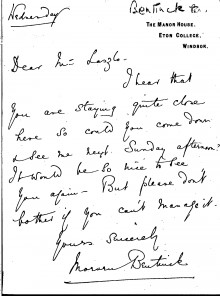 Wednesday
THE MANOR HOUSE,
ETON COLLEGE,
WINDSOR.
Dear Mr
I hear that
You are staying quite close
here so could you come down
& see me next Sunday afternoon?
It would be so nice to see
you again - But please don't
bother if you can't manage it.
Yours sincerely
Bentinck